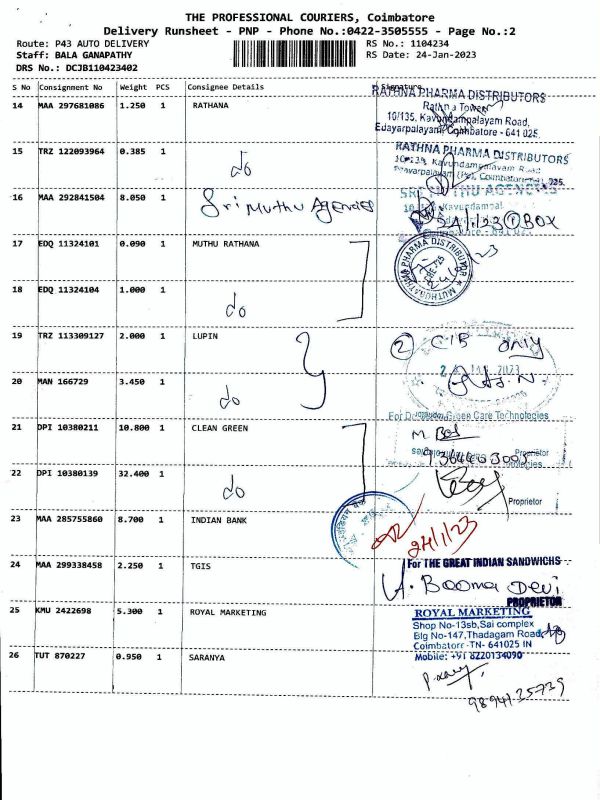 THE PROFESSIONAL COURIERS, Coimbatore
Delivery Runsheet - PNP - Phone No.:0422-3505555 - Page No.:2
Route: P43 AUTO DELIVERY
RS No.: 1104234
Staff: BALA GANAPATHY
RS Date: 24-Jan-2023
DRS No.: DCJB110423402
S No Consignment No Weight PCS Consignee Details Signature
14 MAA 297681086 1.250 1 RATHANA
RATHNA PHARMA DISTRIBUTORS
Rathna Tower
10/135, Kavundampalayam Road,
Edayarpalayam, Coimbatore - 641 025.
15 TRZ 122093964 0.385 1 do
RATHNA PHARMA DISTRIBUTORS
16 MAA 292841504 8.050 1 Sri Muthu Agencies
SRI MUTHU AGENCIES
24/1/23 1 BOX
17 EDQ 11324101 0.090 1 MUTHU RATHANA
MUTHURATHNA PHARMA DISTRIBUTOR
18 EDQ 11324104 1.000 1 do
19 TRZ 113309127 2.000 1 LUPIN
2 C/B only
20 MAN 166729 3.450 1 do
For Green Care Technologies
21 DPI 10380211 10.800 1 CLEAN GREEN
Proprietor
22 DPI 10380139 32.400 1 do
Proprietor
23 MAA 285755860 8.700 1 INDIAN BANK
24/1/23
24 MAA 299338458 2.250 1 TGIS
For THE GREAT INDIAN SANDWICHS
Booma Devi
PROPRIETOR
25 KMU 2422698 5.300 1 ROYAL MARKETING
ROYAL MARKETING
Shop No-13sb,Sai complex
Blg No-147,Thadagam Road,
Coimbatore -TN- 641025 IN
Mobile: +91 8220134090
26 TUT 870227 0.950 1 SARANYA
9894135739